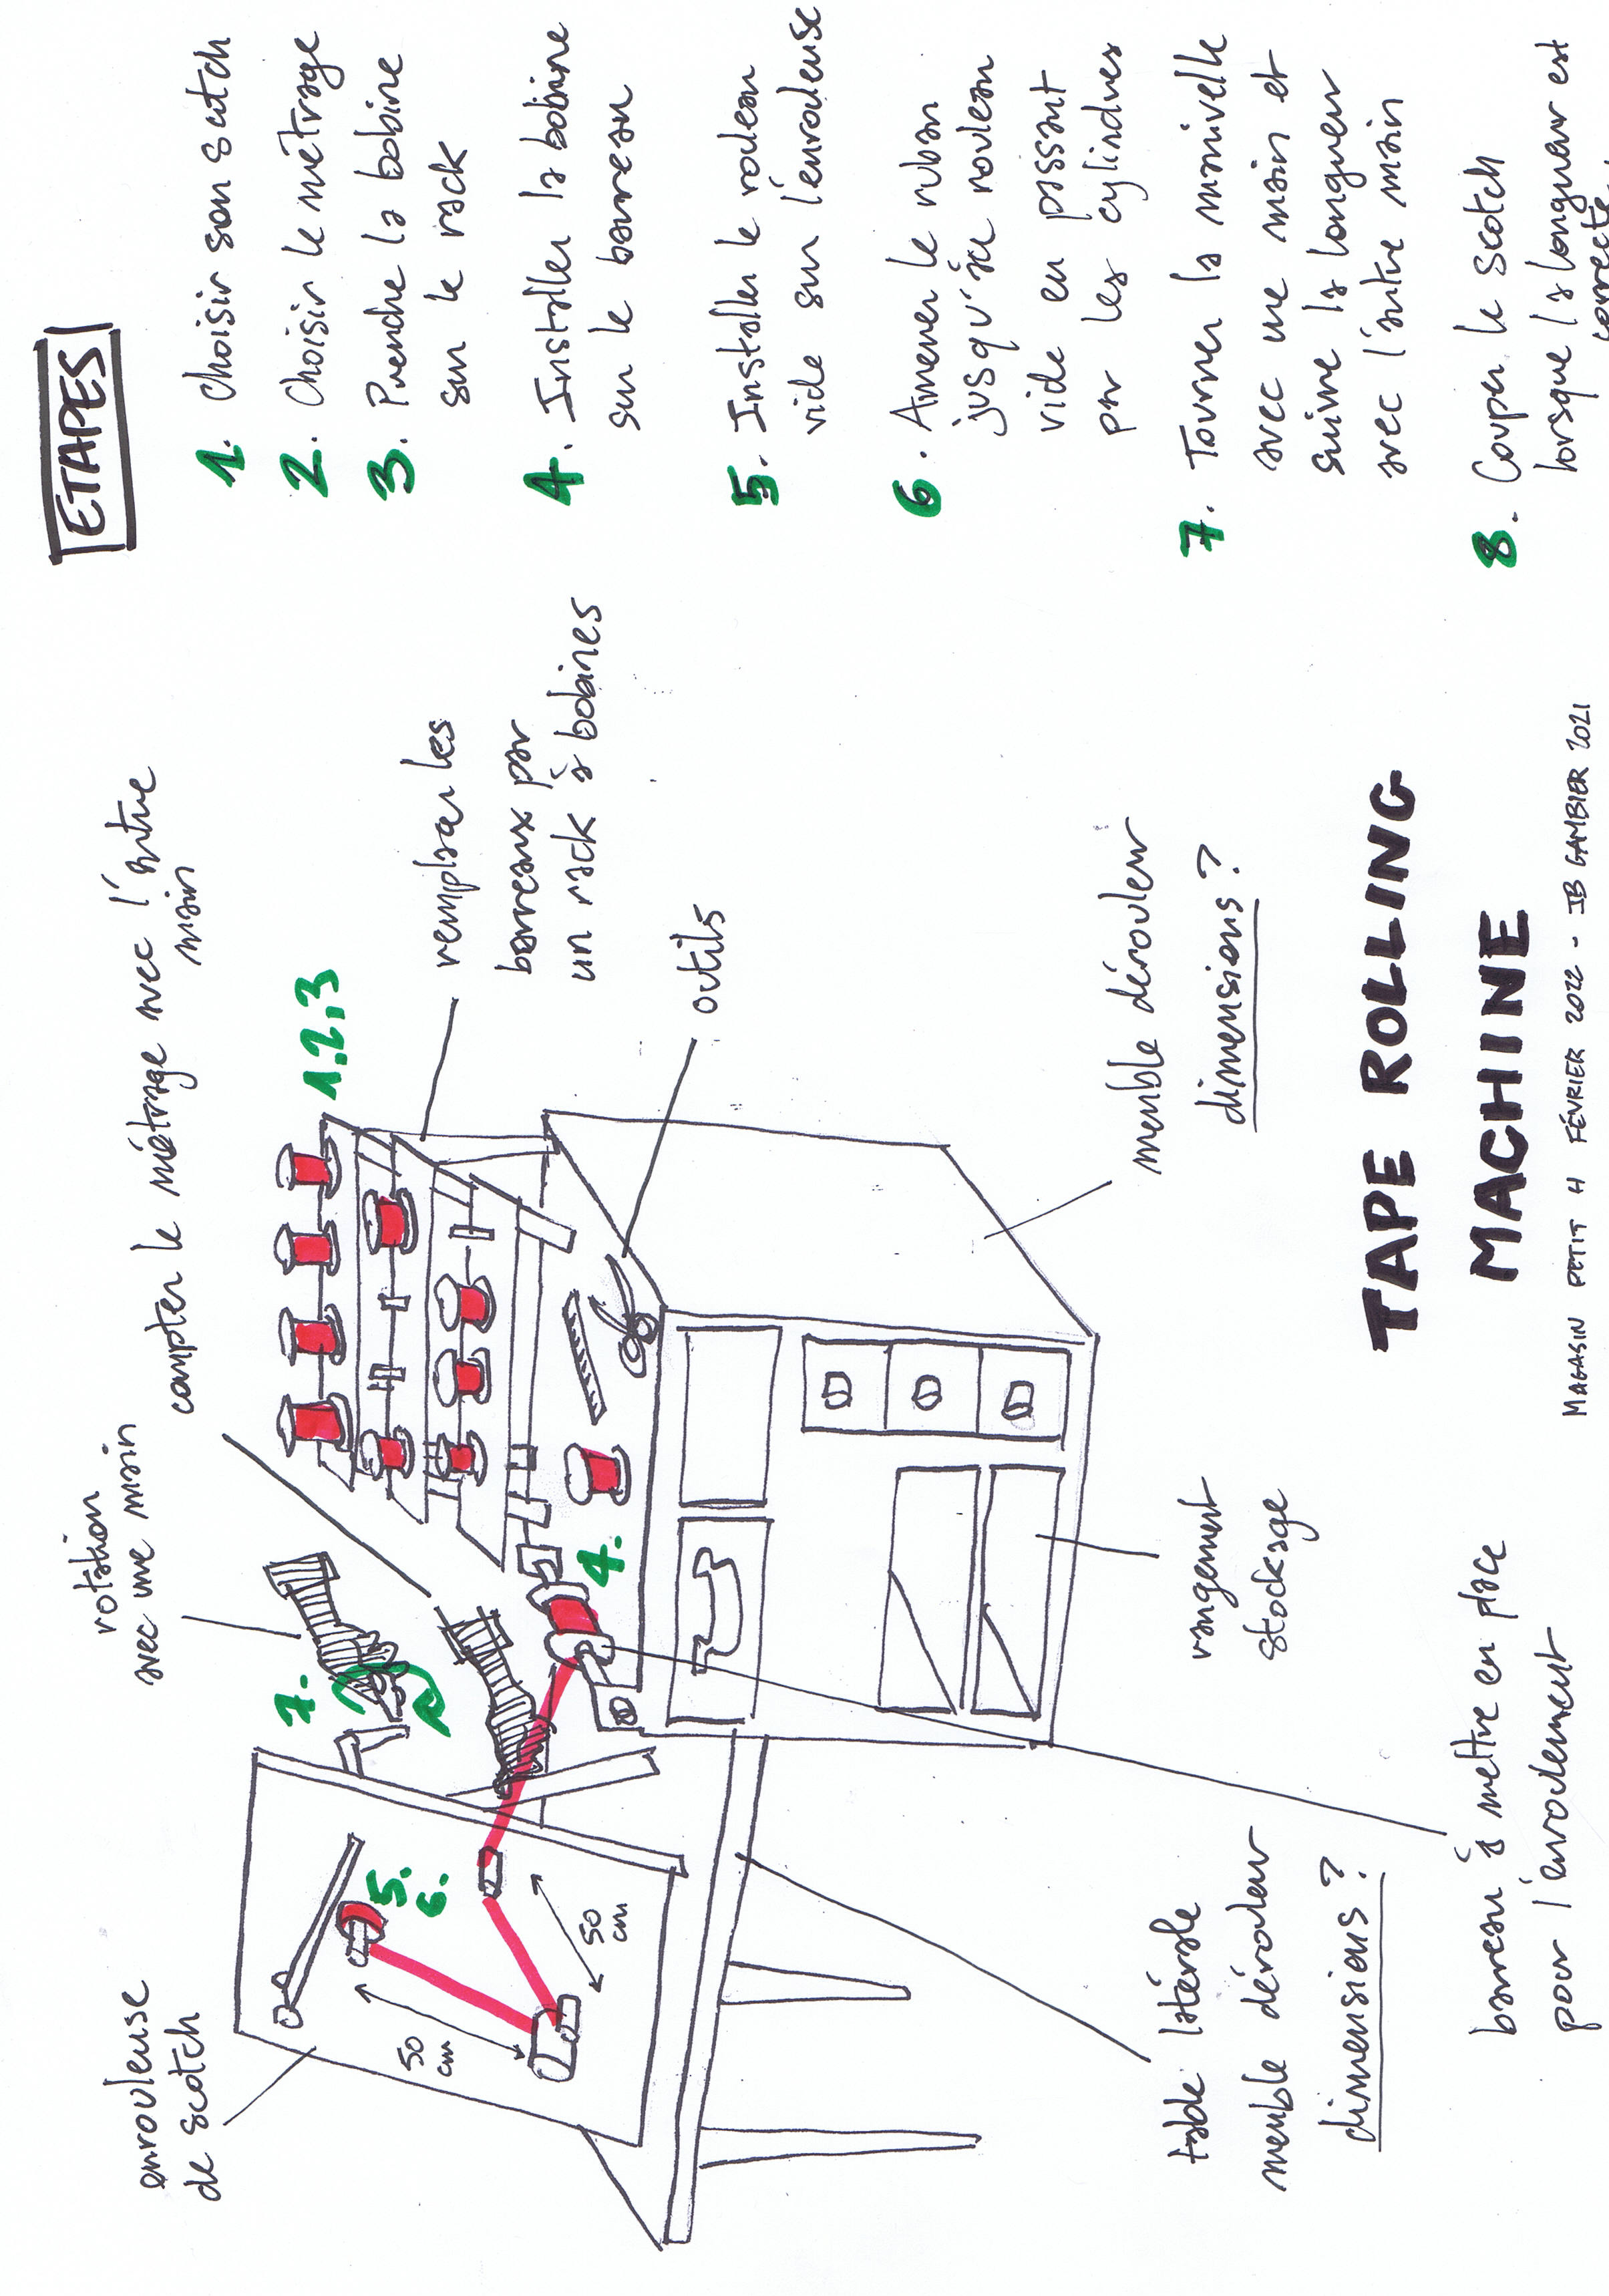 ETAPES
1. Choisir son scotch
2. Choisir le métrage
3. Prendre la bobine
sur le rack
4. Installer la bobine
sur le barreau
5. Installer le rouleau
vide sur l'enrouleuse
6. Amener le ruban
jusqu'au rouleau
vide en passant
par les cylindres
7. Tourner la manivelle
avec une main et
suivre la longueur
avec l'autre main
8. Couper le scotch
lorsque la longueur est
correcte.
enrouleuse
de scotch
rotation
avec une main
compter le métrage avec l'autre
main
1.2.3
remplacer les
barreaux par
un rack à bobines
outils
7.
4.
5.
6.
50
cm
50
cm
meuble dérouleur
dimensions ?
rangement
stockage
table latérale
meuble dérouleur
dimensions ?
barreau à mettre en place
pour l'enroulement
TAPE ROLLING
MACHINE
MAGASIN PETIT H FÉVRIER 2022 - JB GAMBIER 2021